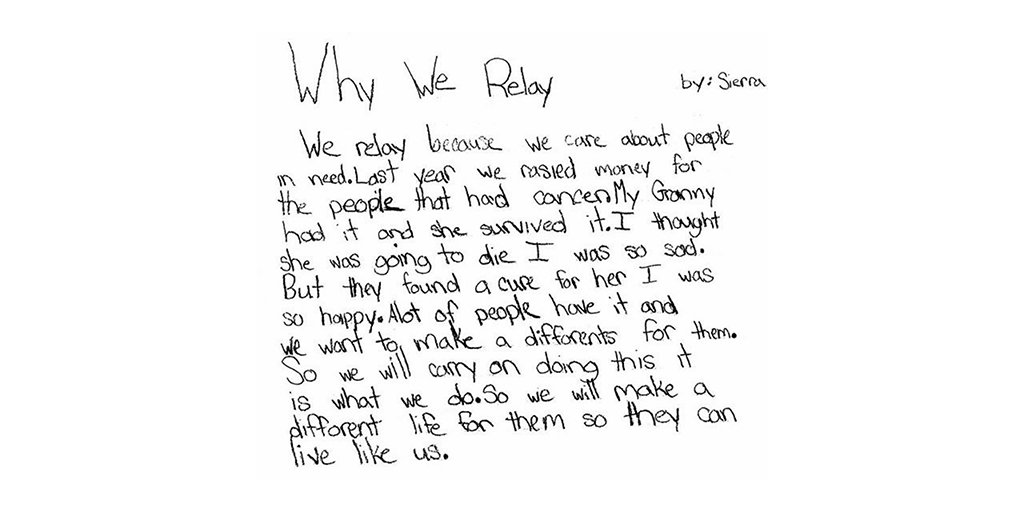 Why We Relay by: Sierra
We relay because we care about people
in need. Last year we rasied money for
the people that had cancer. My Granny
had it and she survived it. I thought
she was going to die I was so sad.
But they found a cure for her I was
so happy. Alot of people have it and
we want to make a differents for them.
So we will carry on doing this it
is what we do. So we will make a
different life for them so they can
live like us.